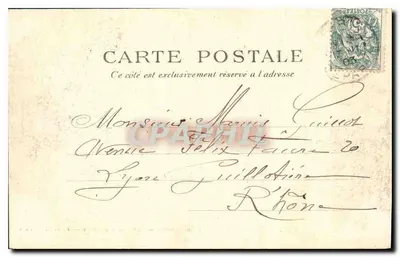 CARTE POSTALE
Ce côté est exclusivement réservé a l'adresse
Monsieur Marius Guillot
Avenue Félix Faure 20
Lyon Guillotière
Rhône